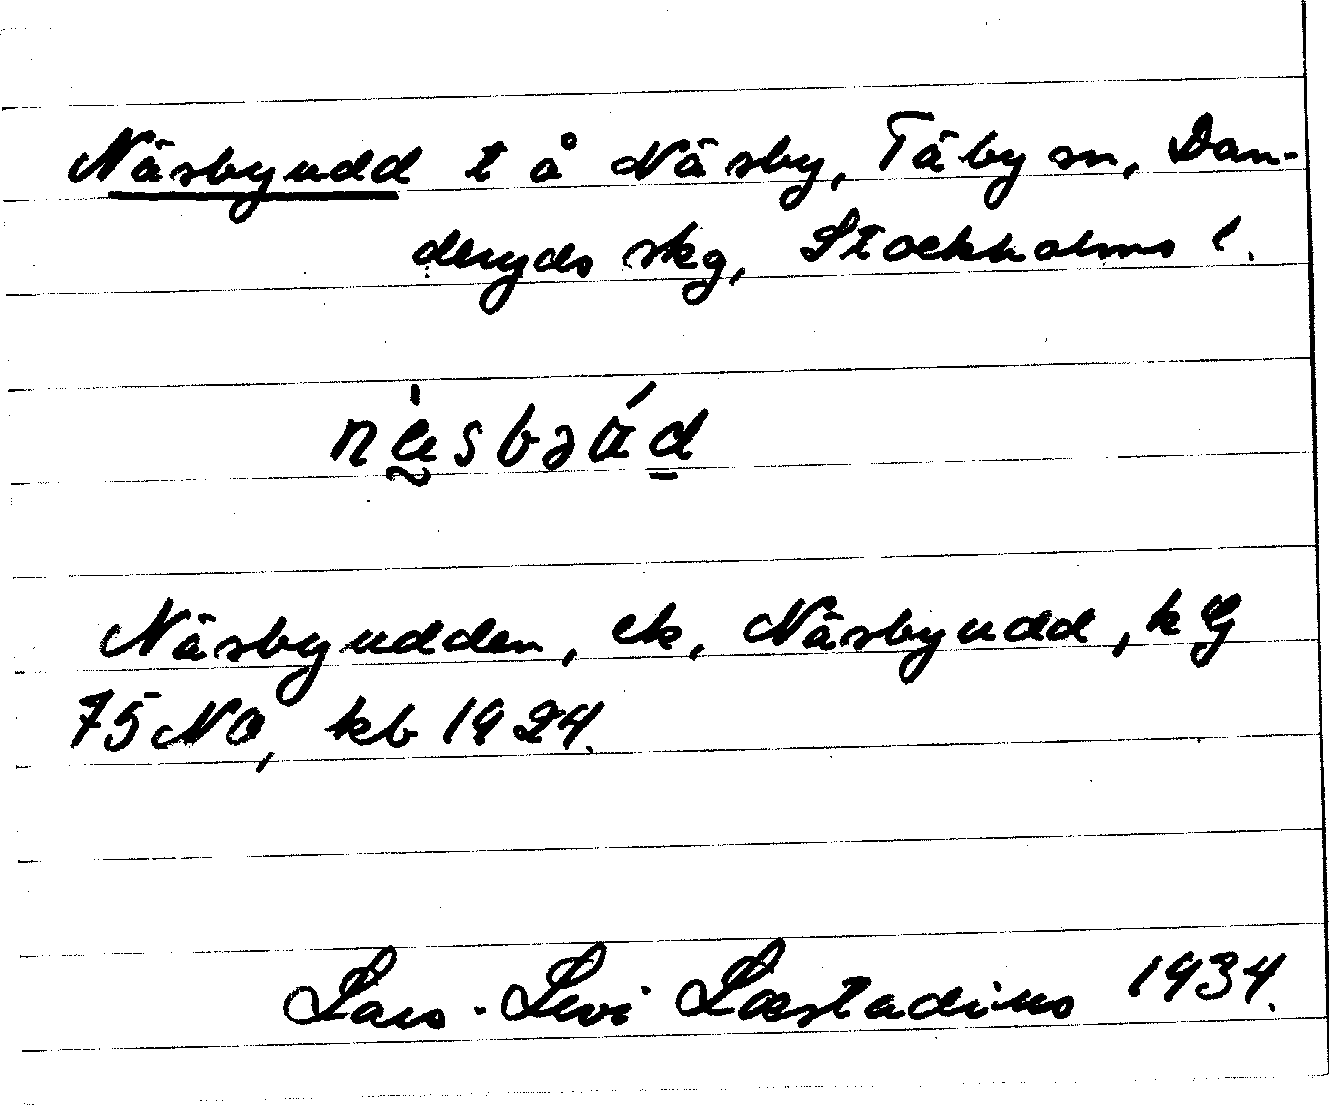 Näsbyudd t å Näsby, Täby sn, Dan-
deryds skg, Stockholms l.
næ̀sbɘúd
Näsbyudden, ek, Näsbyudd, kG
75 NO, kb 1924.
Lars-Levi Læstadius 1934.